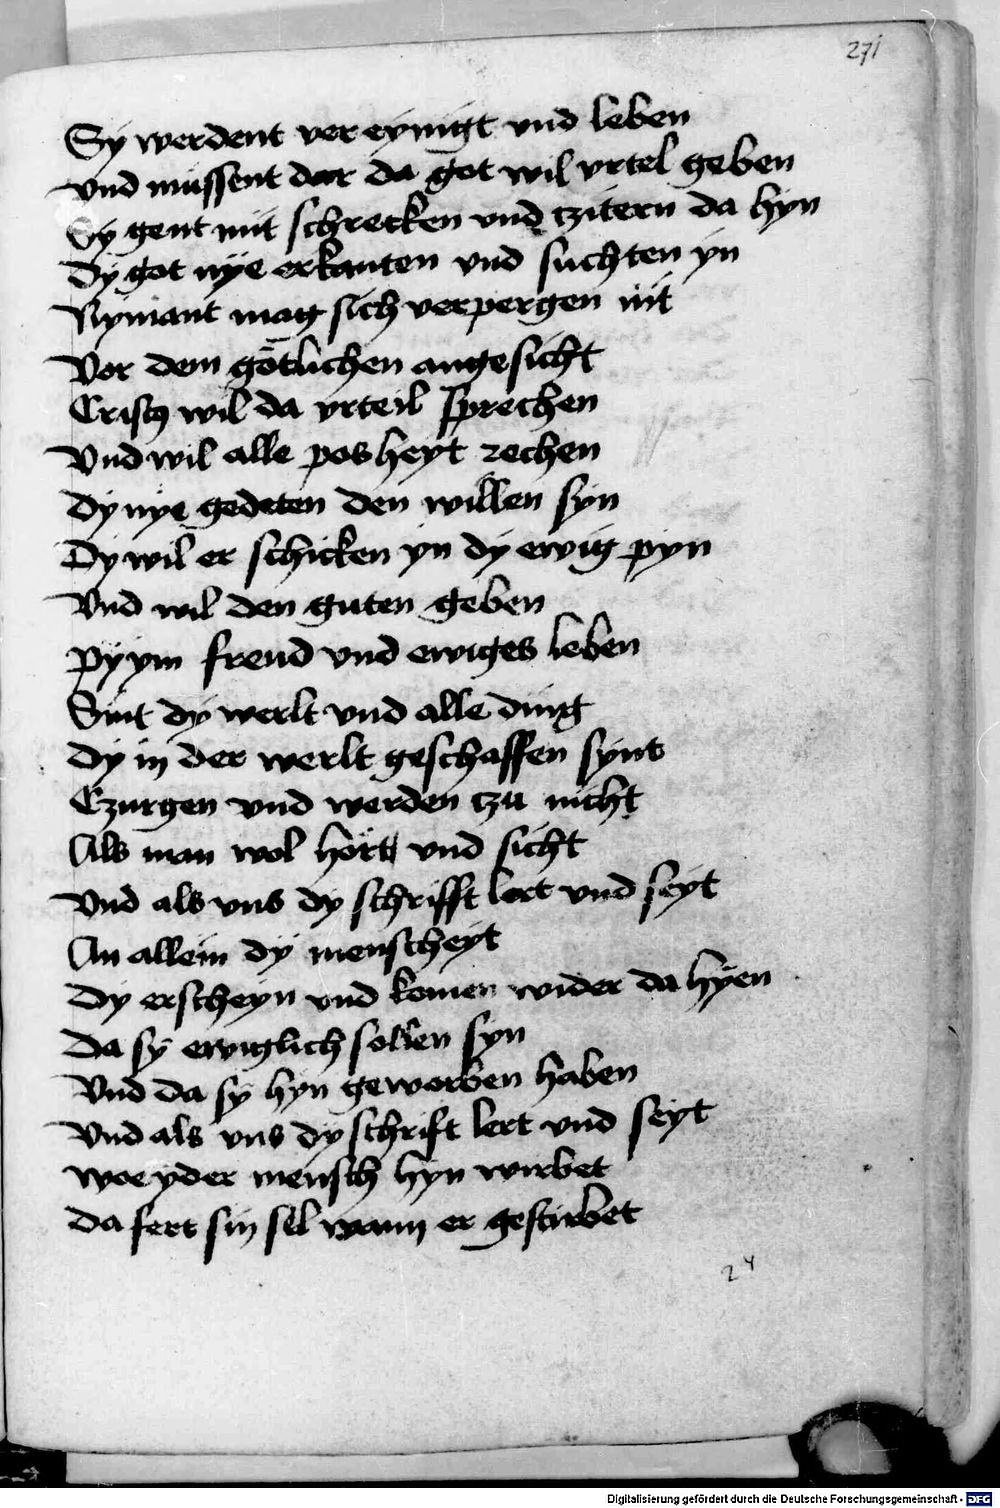 271
Sy werdent vereynigt vnd leben
Vnd müssent dar da got wil vrtel geben
Sy gent mit schrecken vnd tzitern da hyn
Dy got nye erkanten vnd suchten yn
Nymant mag sich verpergen nit
Vor dem götlichen angesicht
Crist wil da vrteil sprechen
Vnd wil alle posheyt rechen
Dy nye gedeten den willen syn
Dy wil er schicken yn dy ewig pyn
Vnd wil den guten geben
Py ym freud vnd ewiges leben
Sint dy werlt vnd alle ding
Dy in der werlt geschaffen synt
Czurgen vnd werden tzu nicht
Als man wol hört vnd sicht
Vnd als vns dy schrifft lert vnd seyt
An allein dy menscheyt
Dy erscheyn vnd komen wider da hyen
Da sy ewiglich sollen syn
Vnd da sy hyn geworben haben
Vnd als vns dy schrift lert vnd seyt
Woe yder mensch hyn wirbet
Da fert sin sel wann er gestirbet
24
Digitalisierung gefördert durch die Deutsche Forschungsgemeinschaft - DFG